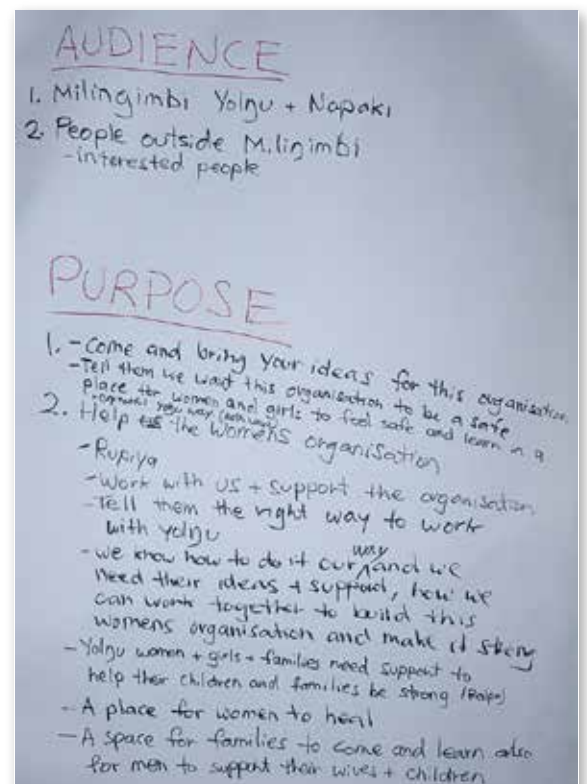 AUDIENCE
1. Milingimbi Yolŋu + Napaki
2. People outside Milinimbi
- interested people
PURPOSE
1. - Come and bring your ideas for this organisation.
- Tell them we want this organisation to be a safe
place for women and girls to feel safe and learn in a
way (both ways)
2. Help the womens organisation
- Rupiya
- Work with us + support the organisation
- Tell them the right way to work
with yolŋu
- we know how to do it our way and we
need their ideas + support, how we
can work together to build this
womens organisation and make it strong
- Yolŋu women + girls + families need support to
help their children and families be strong
- A place for women to heal
- A space for families to come and learn also
for men to support their wives + children